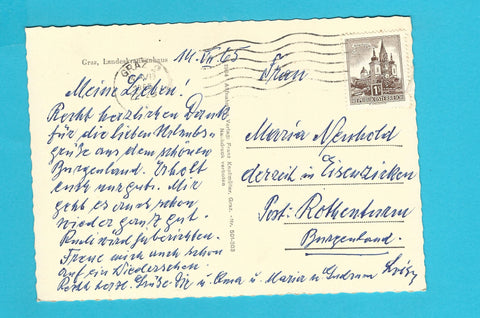 Graz, Landeskrankenhaus
14. VII. 65
GRAZ
REPUBLIK ÖSTERREICH
Meine Lieben!
Recht herzlichen Dank
für die lieben Urlaubs-
grüße aus dem schönen
Burgenland. Erholt
euch nur gut. Mir
geht es auch schon
wieder ganz gut.
wird berichten.
Freue mich auch schon
auf ein Wiedersehen.
Recht herzl. Grüße u. Oma u. Maria u. Gudrun
Verlag Franz Graz. Nr.
Nachdruck verboten
Frau
Maria Neuhold
derzeit in Eisenzicken
Post: Rothenturm
Burgenland.